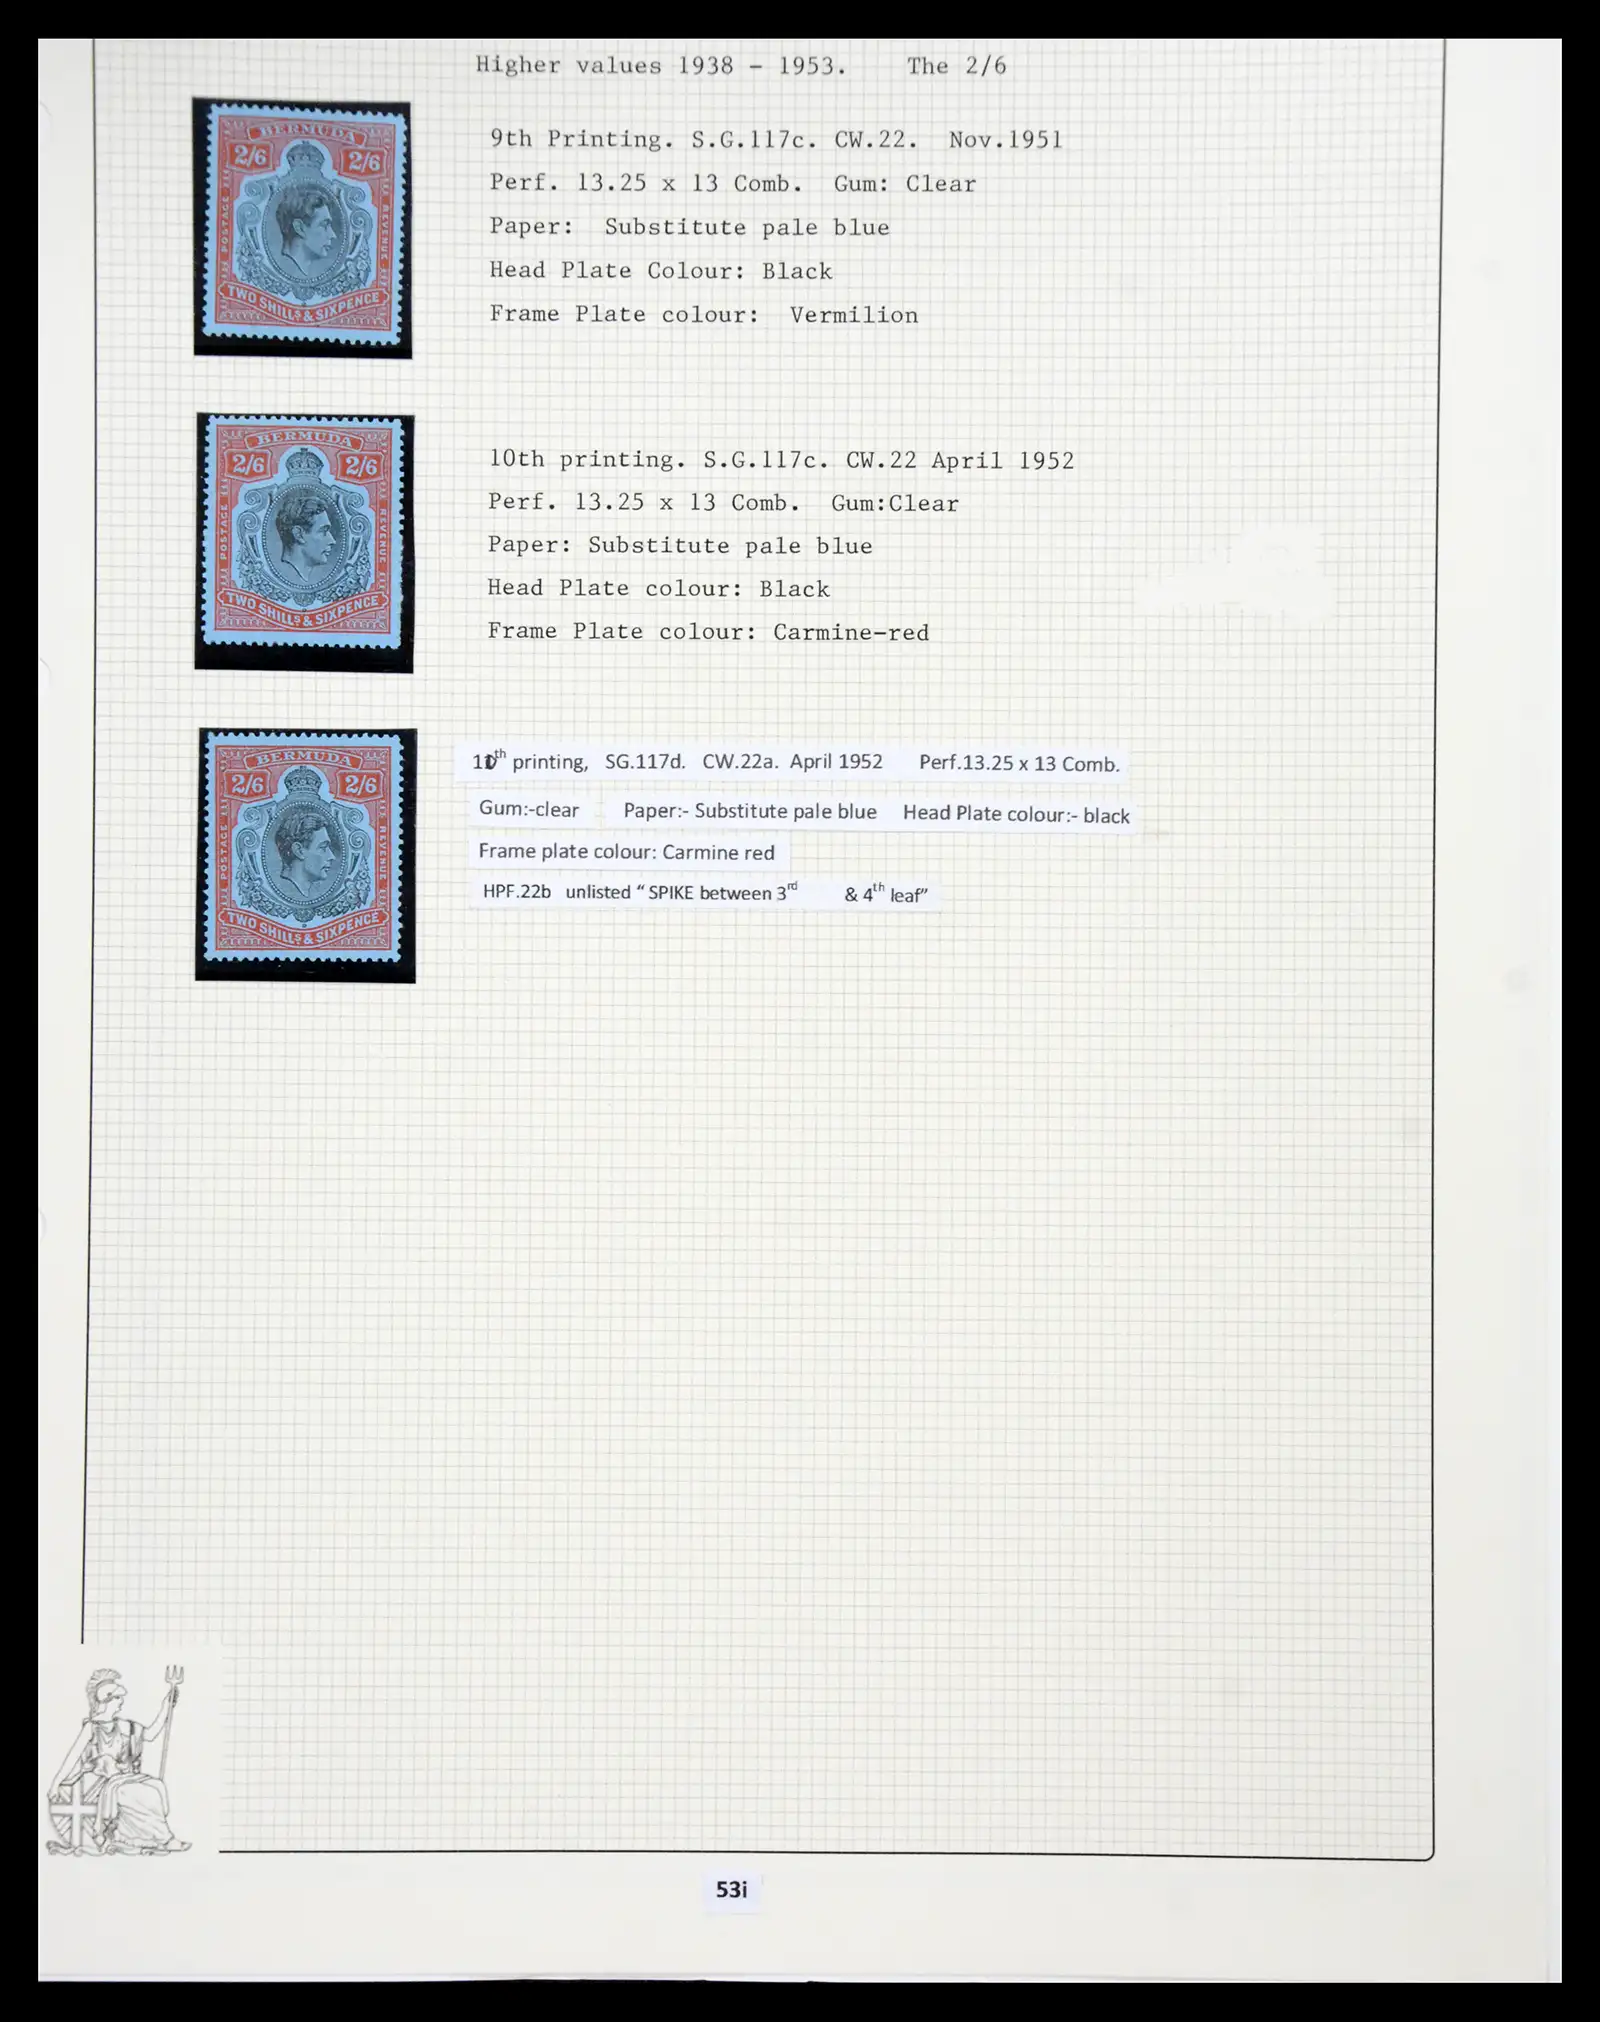 Higher values 1938 - 1953. The 2/6
BERMUDA
2/6 2/6
POSTAGE REVENUE
TWO SHILLS & SIXPENCE
9th Printing. S.G.117c. CW.22. Nov.1951
Perf. 13.25 x 13 Comb. Gum: Clear
Paper: Substitute pale blue
Head Plate Colour: Black
Frame Plate colour: Vermilion
BERMUDA
2/6 2/6
POSTAGE REVENUE
TWO SHILLS & SIXPENCE
10th printing. S.G.117c. CW.22 April 1952
Perf. 13.25 x 13 Comb. Gum:Clear
Paper: Substitute pale blue
Head Plate colour: Black
Frame Plate colour: Carmine-red
BERMUDA
2/6 2/6
POSTAGE REVENUE
TWO SHILLS & SIXPENCE
printing, SG.117d. CW.22a. April 1952 Perf.13.25 x 13 Comb.
Gum:-clear Paper:- Substitute pale blue Head Plate colour:- black
Frame plate colour: Carmine red
HPF.22b unlisted “ SPIKE between 3rd & 4th leaf”
53i